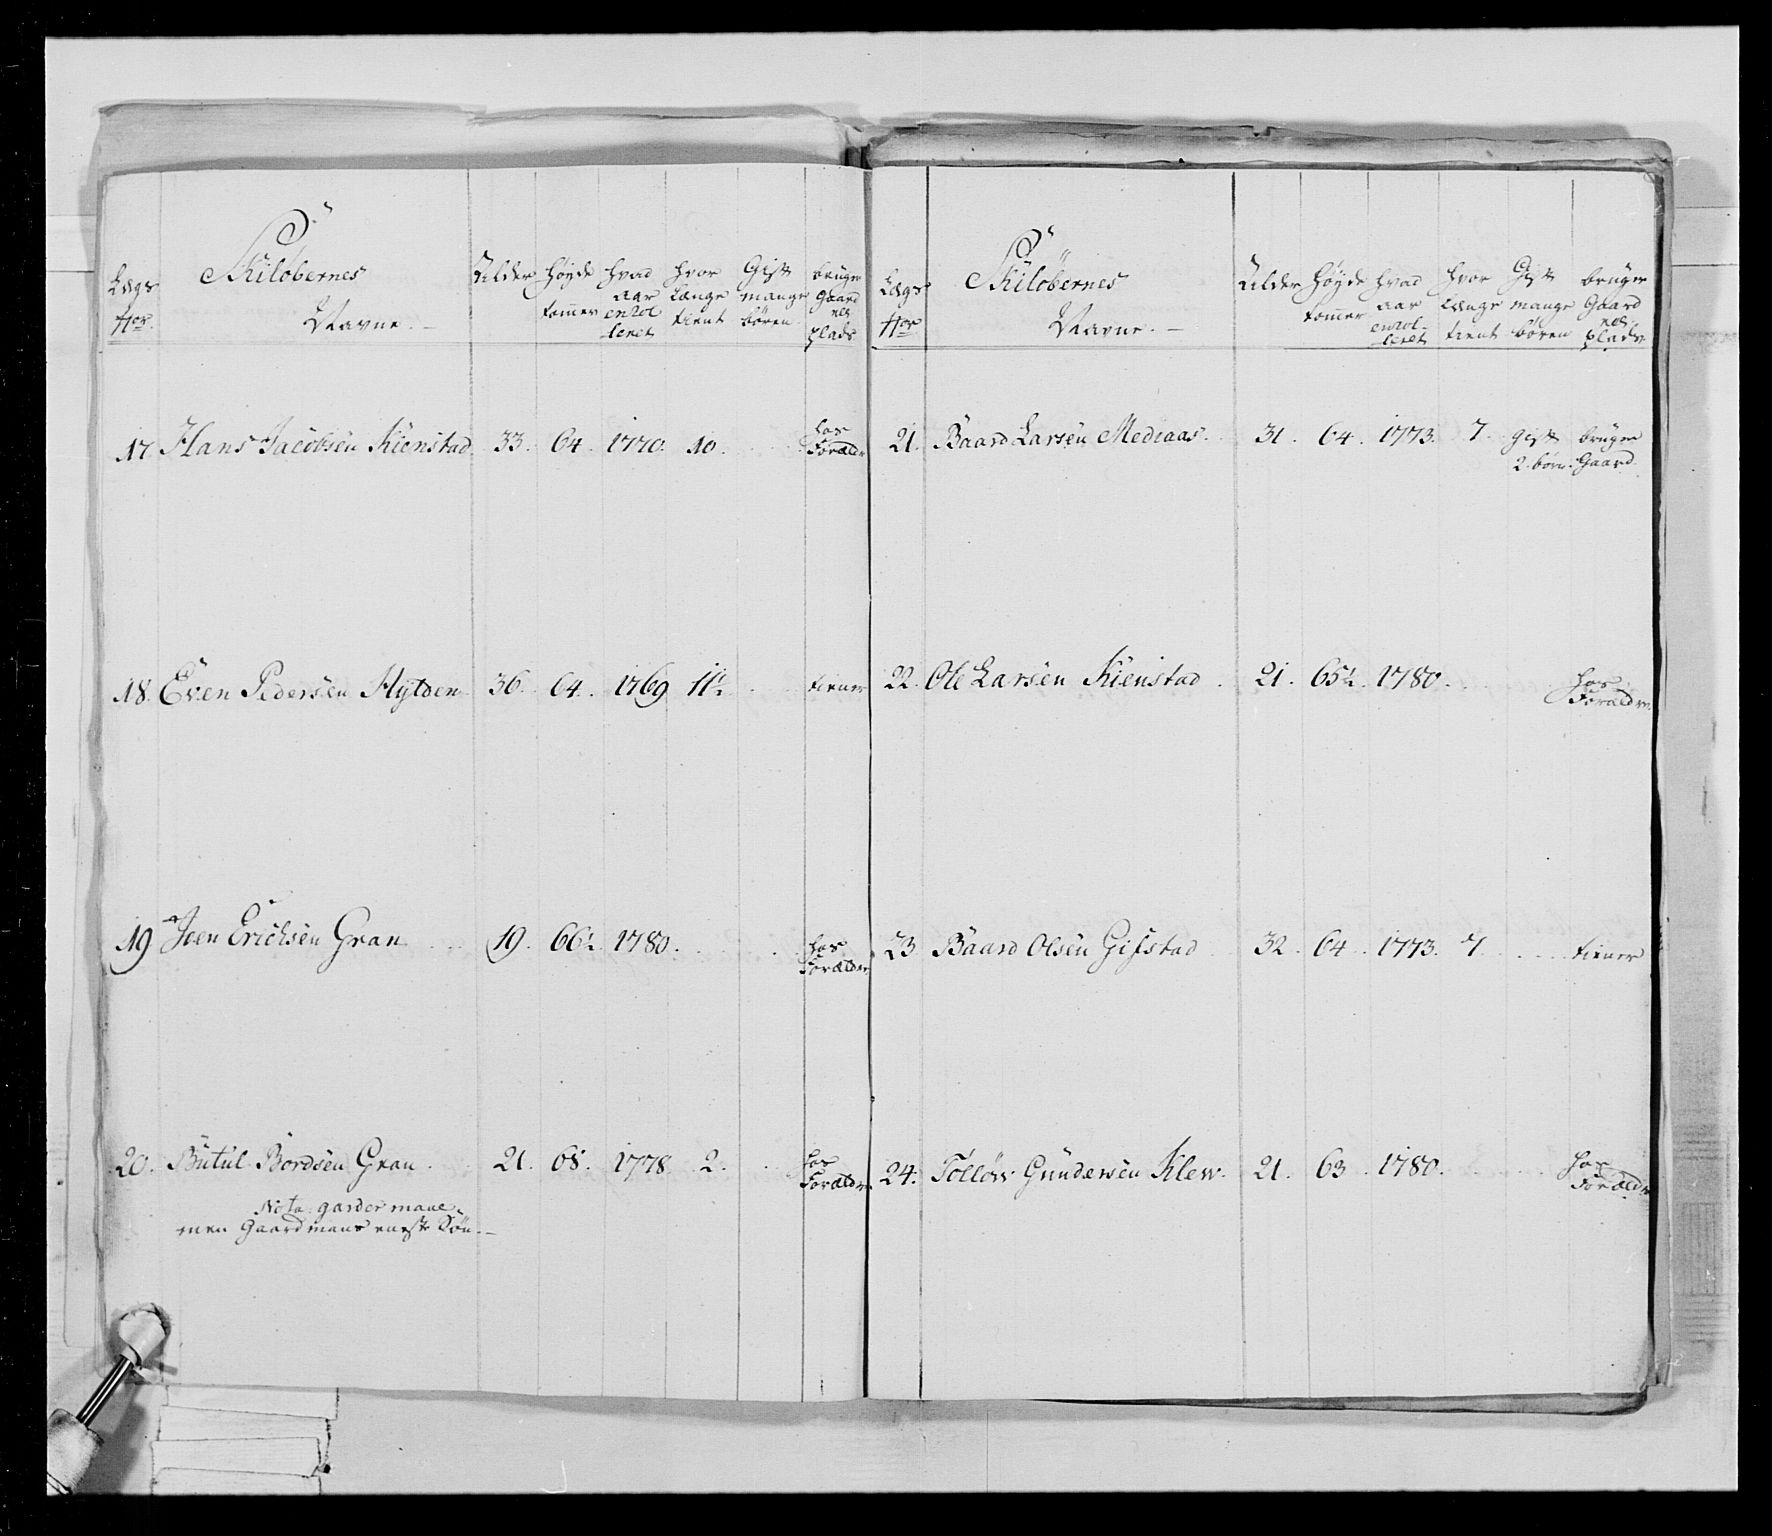 Lægs Nor.
Skilöbernes Navne. Alder höyde tommer hvad aar enrol leret hvor Længe tient Gift mange börn bruger Gaard eller plads
17. Hans Jacobsen Kienstad 33. 64. 1770. 10. hos Forældr
18. Even Pedersen Hylden 36. 64. 1769 11½ tiener
19 Joen Erichsen Gran 19. 66½ 1780. hos Forældre
20. Butul Bordsen Gran. 21. 65. 1778. 2. hos Forældre
Nota: garder mand.
men Gaardmans eneste Sön.
Lægs Nor
Skilöbernes Navne. Alder höyde tommer hvad aar enrol- leret hvor længe tient Gift mange börn bruger Gaard eller plads
21. Baard Larsen Mediaas. 31. 64. 1773. 7. gift 2. börn. bruger Gaard.
22. Ole Larsen Kienstad. 21. 65½. 1780. hos Forældre.
23 Baard Olsen Gifstad 32. 64. 1773. 7. tiener
24. Tolløv Gundersen Klew. 21. 63. 1780. hos Forældre